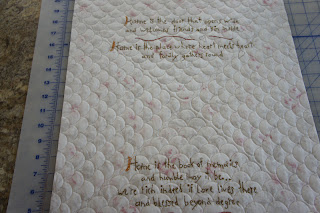 Home is the door that opens wide
and welcomes friends and kin inside
Home is the place where heart meets heart
and family gathers round
Home is the book of memories
and humble may it be...
we're rich indeed if love lives there
and blessed beyond degree